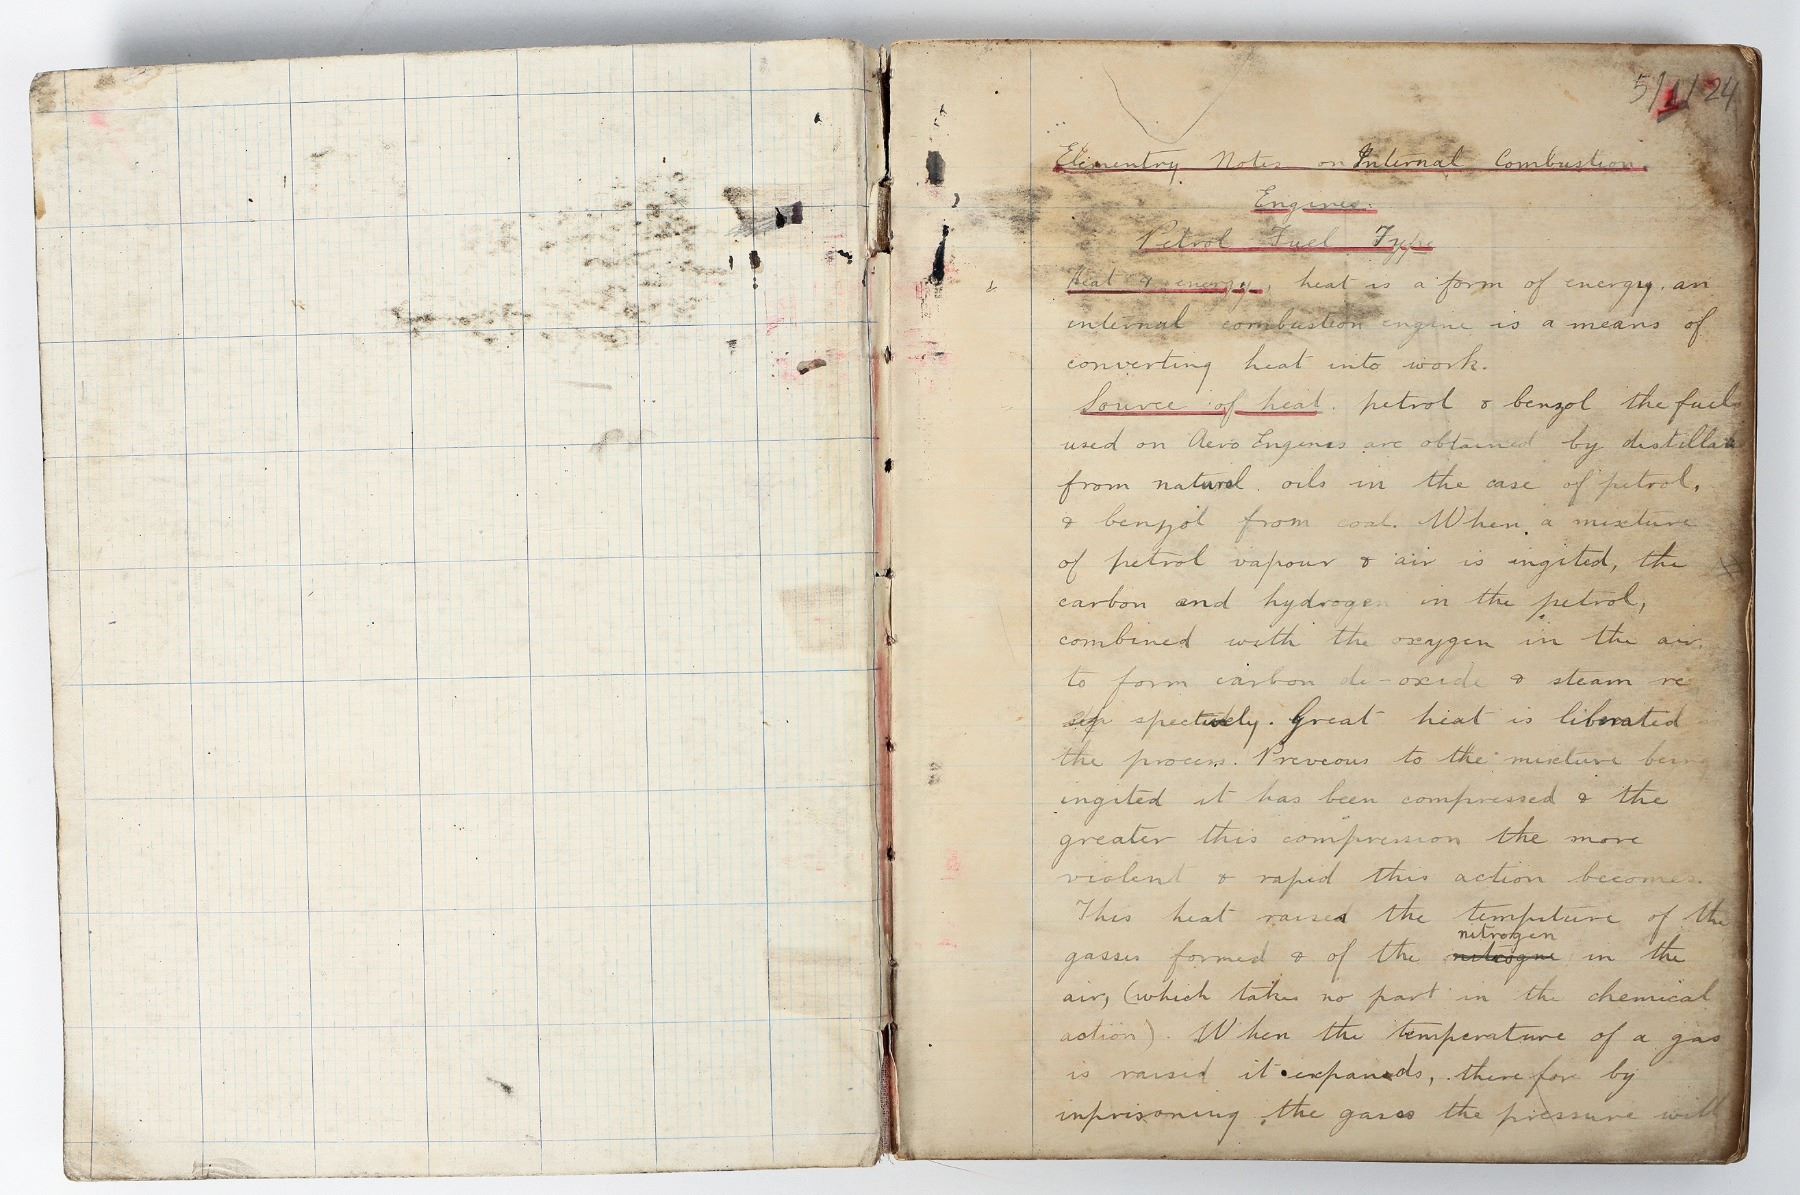 5/1/24
Elementry Notes on Internal Combustion
Engines.
Petrol Fuel Type
Heat & energy, heat is a form of energy, an
internal combustion engine is a means of
converting heat into work.
Source of heat. petrol & benzol the fuels
used on Aero Engines are obtained by
from natural oils in the case of petrol,
& benzol from coal. When a mixture
of petrol vapour & air is ingited, the
carbon and hydrogen in the petrol,
combined with the oxygen in the air,
to form carbon di-oxide & steam re
spectively. Great heat is liberated
the process. Preveous to the mixture being
ingited it has been compressed & the
greater this compression the more
violent & rapid this action becomes.
This heat raised the tempiture of the
nitrogen
gasses formed & of the nitrogne in the
air, (which takes no part in the chemical
action). When the temperature of a gas
is raised it expands, there for by
inprisoning the gases the pressure will